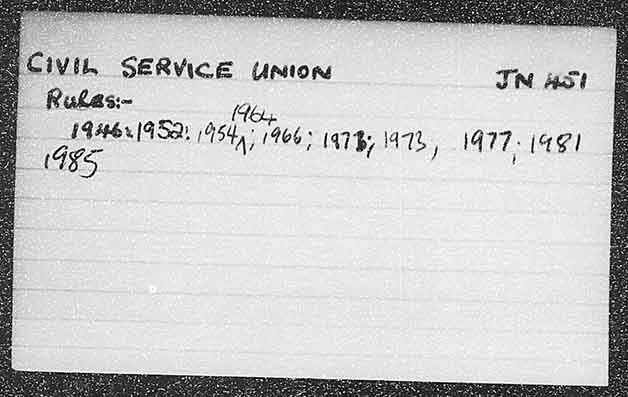 CIVIL SERVICE UNION JN 451
Rules:-
1964
1946: 1952: 1954^; 1966; 1971; 1973, 1977; 1981
1985